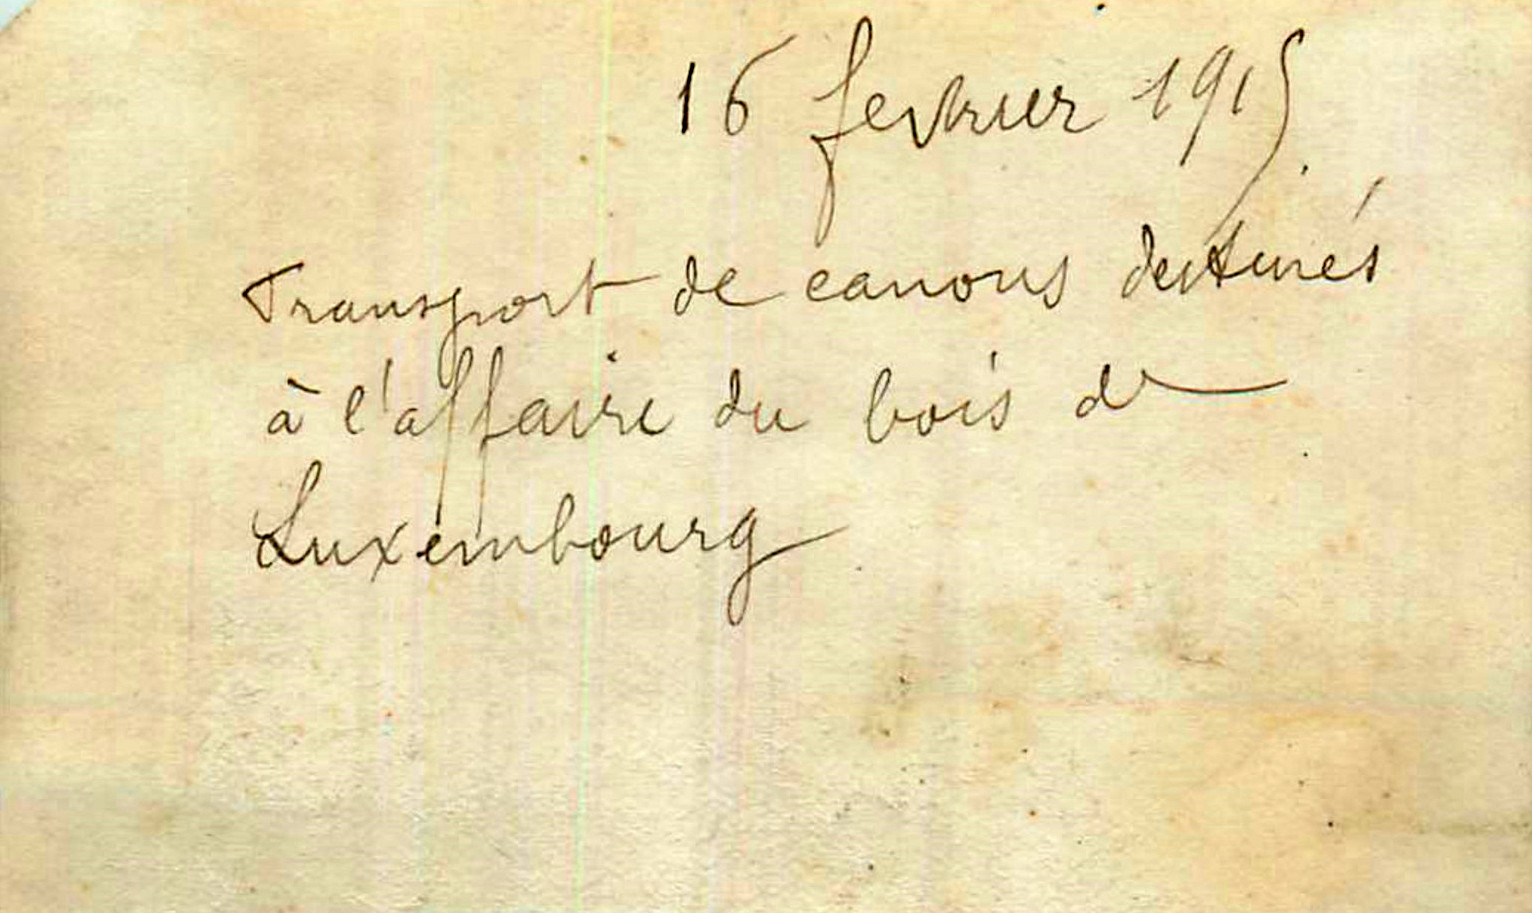 16 fevrier 1915
Transport de canons destinés
à l'affaire du bois de
Luxembourg